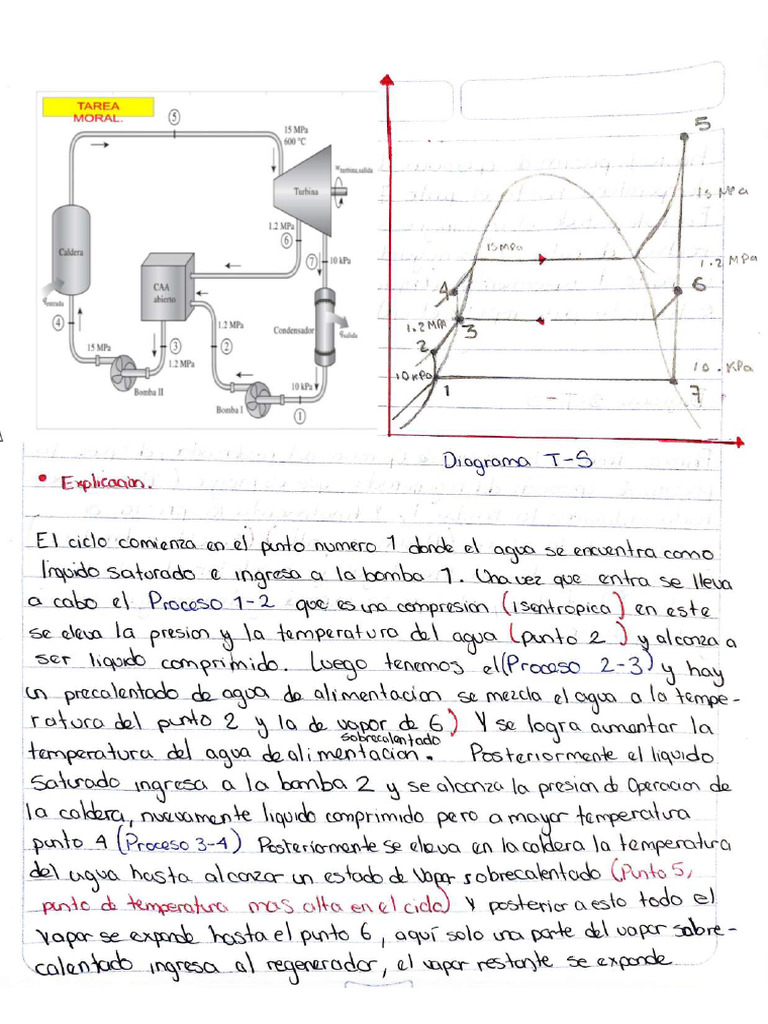 TAREA
MORAL.
5
15 MPa
600 °C
Turbina
w turbina,salida
1.2 MPa
6
7
10 kPa
Caldera
CAA
abierto
q entrada
1.2 MPa
Condensador
q salida
4
3
2
15 MPa
1.2 MPa
Bomba II
10 kPa
Bomba I
1
5
15 MPa
15 MPa
1.2 MPa
4
6
1.2 MPA
3
2
10 kPa
10. KPa
1
7
Diagrama T-S
• Explicación.
El ciclo comienza en el punto numero 1 donde el agua se encuentra como
líquido saturado e ingresa a la bomba 1. Una vez que entra se lleva
a cabo el Proceso 1-2 que es una compresion (isentropica) en este
se eleva la presion y la temperatura del agua (punto 2) y alcanza a
ser liquido comprimido. Luego tenemos el (Proceso 2-3) y hay
un precalentado de agua de alimentacion se mezcla el agua a la tempe-
ratura del punto 2 y la de vapor de 6) Y se logra aumentar la
sobrecalentado
temperatura del agua de alimentacion. Posteriormente el liquido
saturado ingresa a la bomba 2 y se alcanza la presion de Operacion de
la caldera, nuevamente liquido comprimido pero a mayor temperatura
punto 4 (Proceso 3-4) Posteriormente se eleva en la caldera la temperatura
del agua hasta alcanzar un estado de Vapor sobrecalentado (Punto 5,
punto de temperatura mas alta en el ciclo) Y posterior a esto todo el
vapor se expande hasta el punto 6, aquí solo una parte del vapor sobre-
calentado ingresa al regenerador, el vapor restante se expande